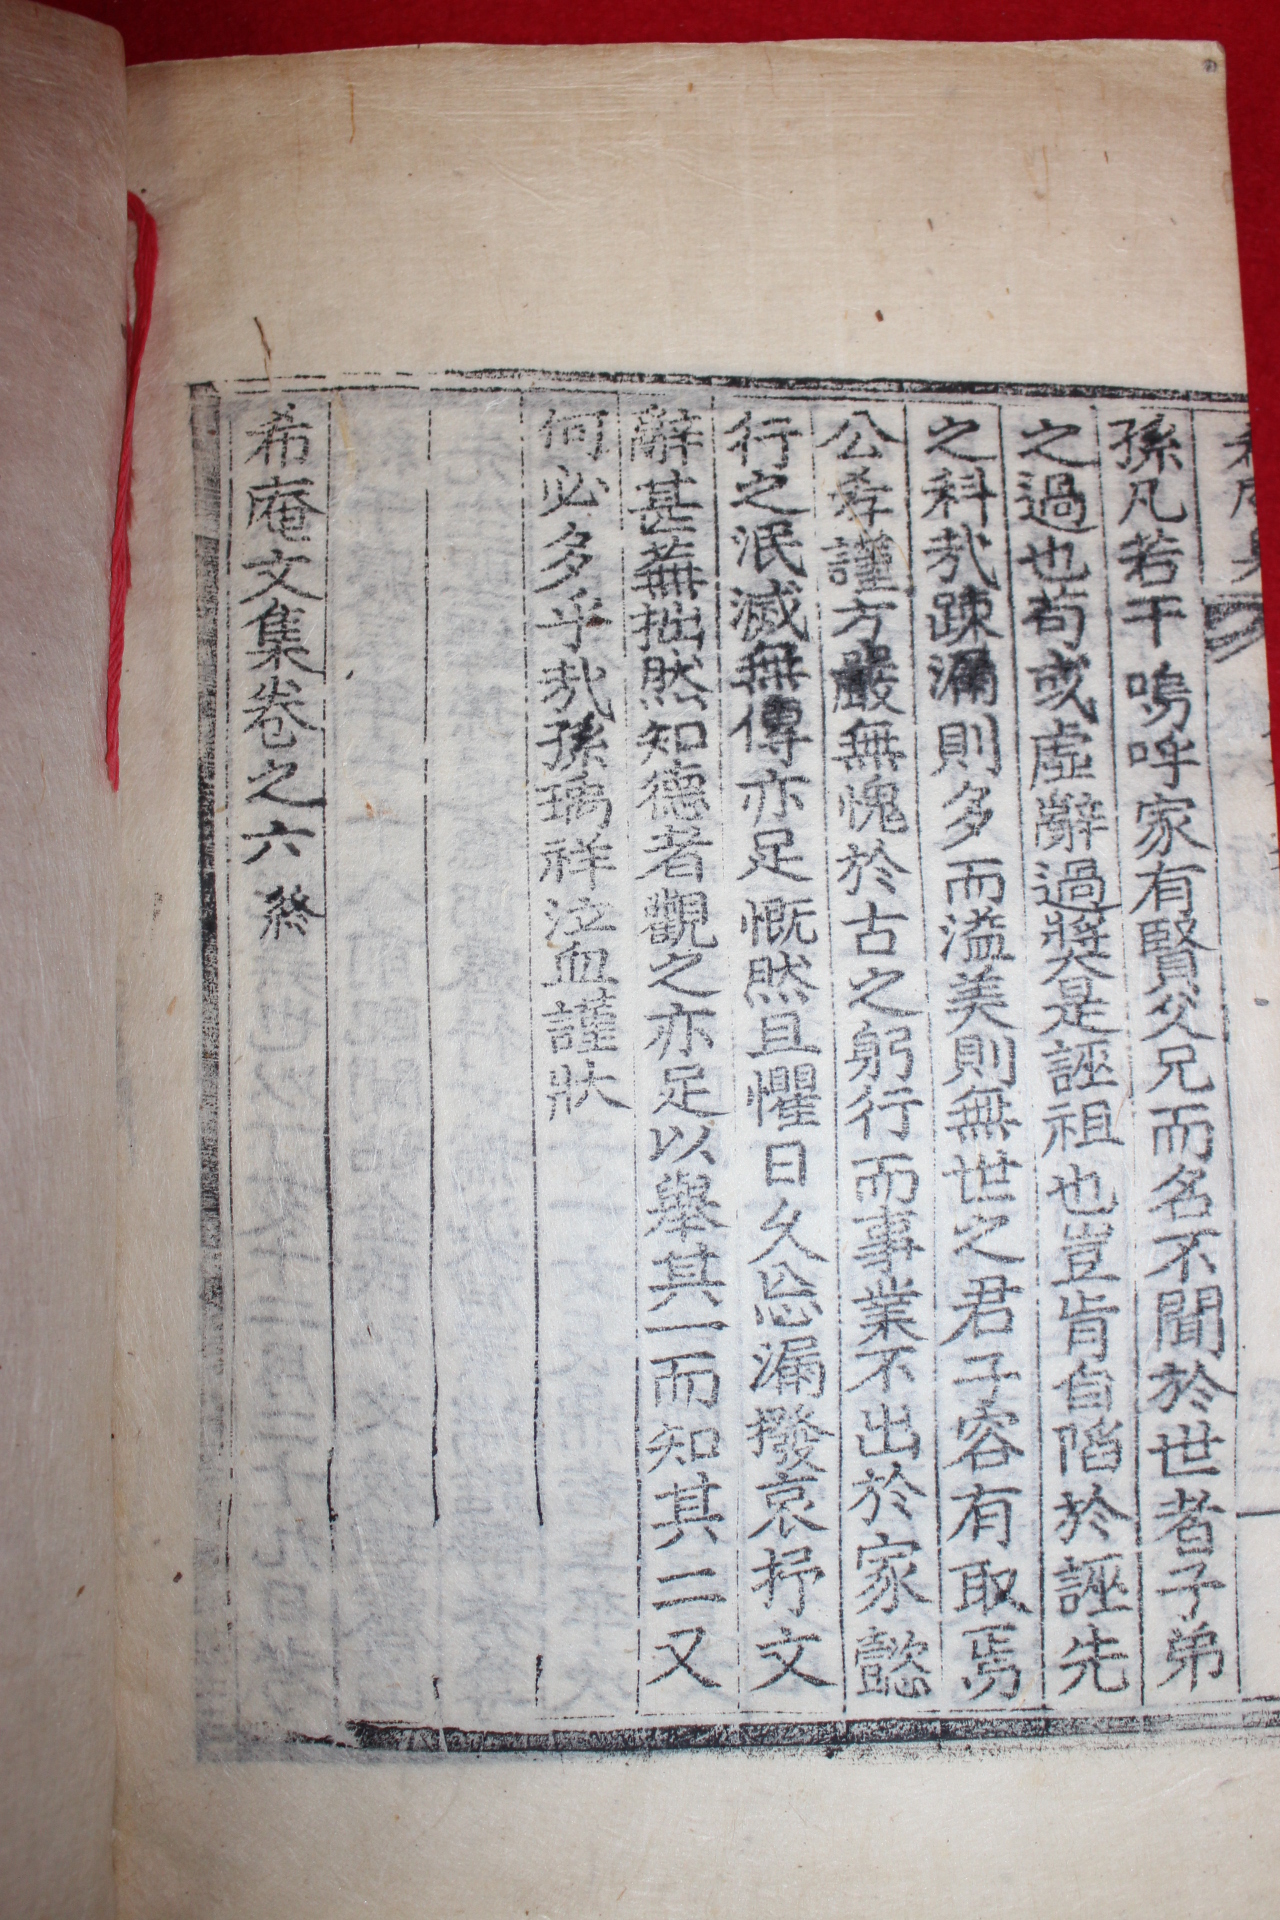 孫凡若干嗚呼家有賢父兄而名不聞於世者子弟
之過也苟或虛辭過奬是誣祖也豈肯自陷於誣先
之科哉踈漏則多而溢美則無世之君子容有取焉
公孝謹方嚴無愧於古之躬行而事業不出於家懿
行之泯滅無傳亦足慨然且懼日久忘漏撥哀抒文
辭甚蕪拙然知德者觀之亦足以擧其一而知其二又
何必多乎哉孫瑀祥泣血謹狀
希庵文集卷之六 終